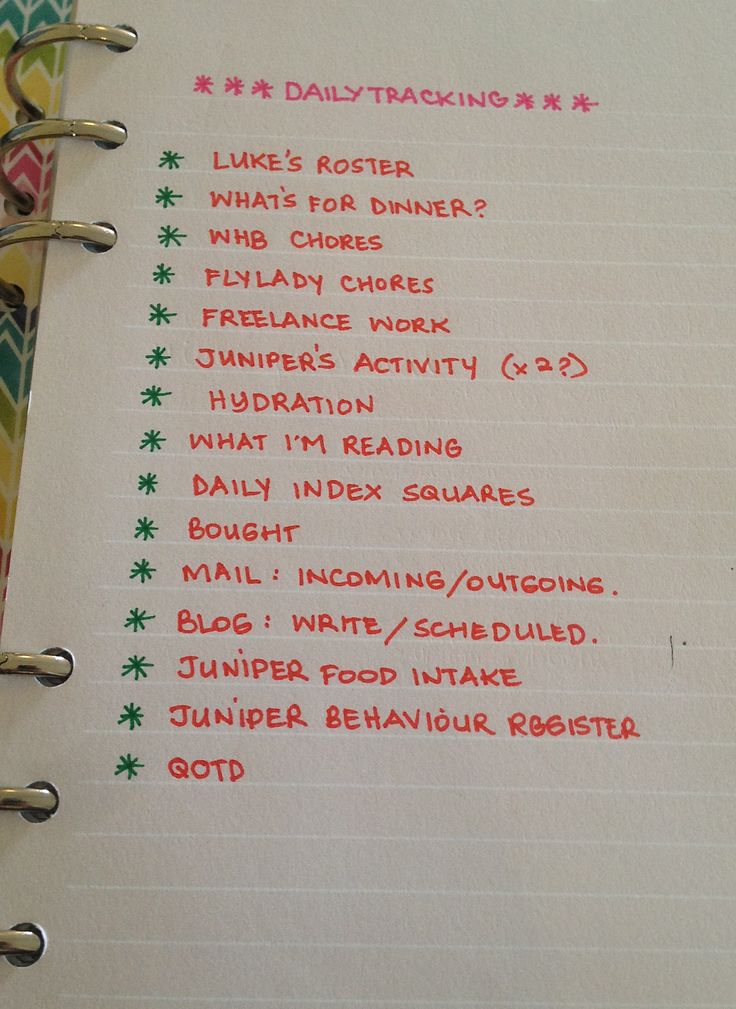 *** DAILY TRACKING ***
* LUKE'S ROSTER
* WHAT'S FOR DINNER?
* WHB CHORES
* FLYLADY CHORES
* FREELANCE WORK
* JUNIPER'S ACTIVITY (x2?)
* HYDRATION
* WHAT I'M READING
* DAILY INDEX SQUARES
* BOUGHT
* MAIL: INCOMING/OUTGOING.
* BLOG: WRITE/SCHEDULED.
* JUNIPER FOOD INTAKE
* JUNIPER BEHAVIOUR REGISTER
* QOTD